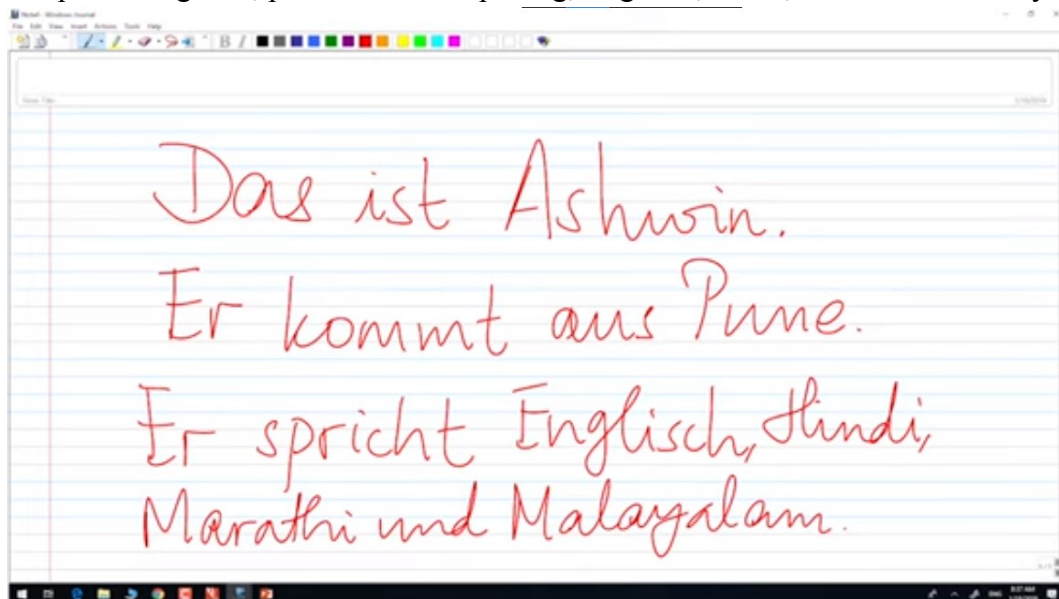 Note1 - Windows Journal
File Edit View Insert Actions Tools Help
B I
Note Title
Das ist Ashwin.
Er kommt aus Pune.
Er spricht Englisch, Hindi,
Marathi und Malayalam.
ENG